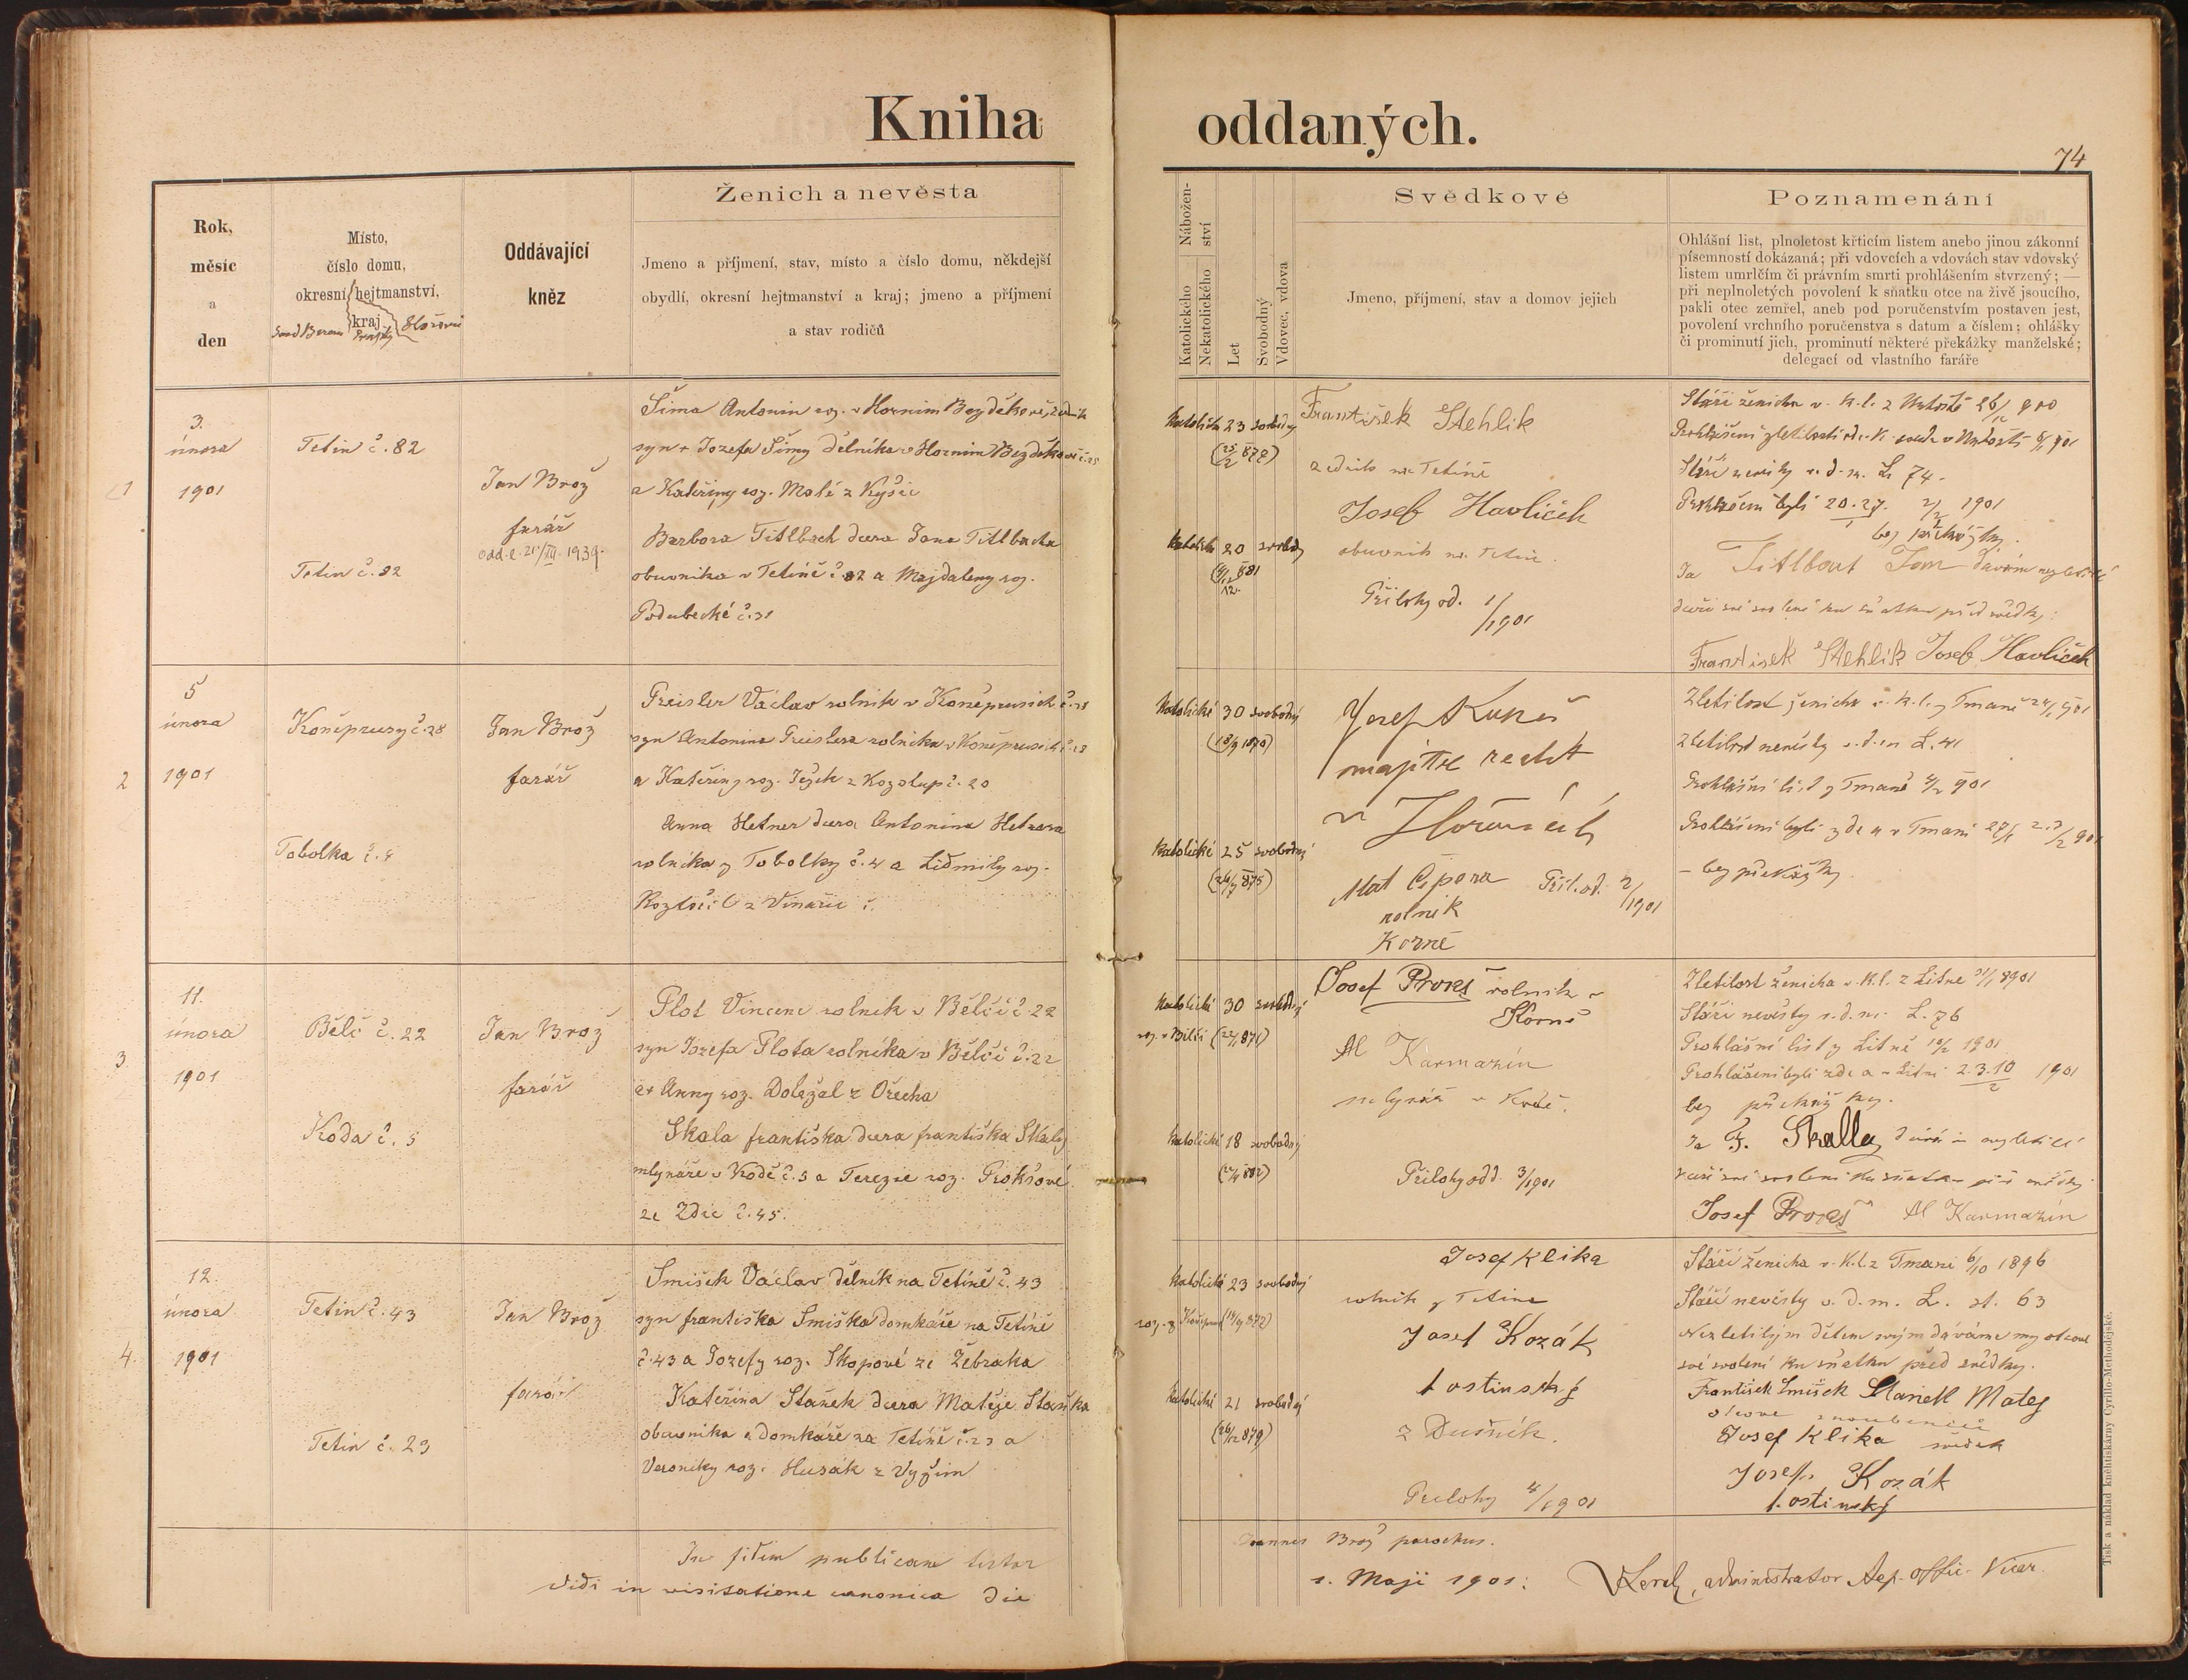 Kniha oddaných.
74
Rok,
měsíc
a
den
Místo,
číslo domu,
okresní hejtmanství,
kraj
Oddávající
kněz
Ženich a nevěsta
Jmeno a příjmení, stav, místo a číslo domu, někdejší
obydlí, okresní hejtmanství a kraj; jmeno a příjmení
a stav rodičů
Nábožen-
ství
Katolického
Nekatolického
Let
Svobodný
Vdovec, vdova
Svědkové
Jmeno, příjmení, stav a domov jejich
Poznamenání
Ohlášní list, plnoletost křticím listem anebo jinou zákonní
písemností dokázaná; při vdovcích a vdovách stav vdovský
listem umrlčím či právním smrti prohlášením stvrzený; —
při neplnoletých povolení k sňatku otce na živě jsoucího,
pakli otec zemřel, aneb pod poručenstvím postaven jest,
povolení vrchního poručenstva s datum a číslem; ohlášky
či prominutí jich, prominutí některé překážky manželské;
delegací od vlastního faráře
1
3.
února
1901
Tetín č. 82
Tetín č. 82
Jan Brož
farář
Šíma Antonín roz. v Horním Bezděkově, zedník
syn + Jozefa Šímy dělníka v Horním Bezděkově č. 25
a Kateřiny roz. Malé z Kyšic
Barbora Titlbach dcera Jana Titlbacha
obuvníka v Tetíně č. 82 a Majdaleny roz.
Podubecké č. 31
23 svobodný
20
František Stehlik
zedník na Tetíně
Josef Havlíček
obuvník na Tetíně.
Přílohy od. 1/1901
Prohlášeni byli 20. 27. 2/2 1901
bez překážky.
Ja Titlbach Jan dávám nezletilé
dceři své svolení ku sňatku před svědky:
František Stehlik Josef Havlíček
2
5
února
1901
Koněprusy č. 28
Tobolka č. 4
Jan Brož
farář
Greisler Václav rolník v Koněprusích č. 28
syn Antonina Greislera rolníka v Koněprusích č. 28
a Kateřiny roz. Ježek z Kozolup č. 20
Anna Hetner dcera Antonina Hetnera
rolníka z Tobolky č. 4 a Lidmily roz.
Roztočil z Vinařic č.
Katolické 30 svobodný
(18/9 1870)
Katolické 25 svobodný
(26/7 875)
Josef Kuneš
majitel realit
Mat Čepera
rolník
Korně
Příl. od. 2/1901
Zletilost ženicha v. k. l. z Tmaně
Zletilost nevěsty v. d. m. L. 41
Prohlášní list z Tmaně 4/2 901
Prohlášeni byli zde a v Tmani
– bez překážky.
3
11.
února
1901
Bělč č. 22
Koda č. 5
Jan Brož
farář
Plot Vincenc rolník v Bělči č. 22
syn Jozefa Plota rolníka v Bělči č. 22
a + Anny roz. Doležal z Ořecha
Skala františka dcera františka Skaly
mlynáře v Kodě č. 5 a Terezie roz. Prokšové
ze Zdic č. 45.
Katolické 30 svobodný
Katolické 18 svobodný
Josef Prokš rolník v
Korně
Al Karmazín
mlynář v Kodě.
Přílohy odd. 3/1901
Zletilost ženicha v. k. l. z Litně
Stáří nevěsty v. d. m. L. 76
Prohlášní list z Litně 10/2 1901
Prohlášeni byli zde a v Litni 2. 3. 10/2 1901
bez překážky.
Ja F. Skalla dávám nezletilé
dceři své svolení ku sňatku před svědky
Josef Prokš Al Karmazín
4.
12.
února
1901
Tetín č. 43
Tetín č. 23
Jan Brož
farář
Smíšek Václav dělník na Tetíně č. 43
syn františka Smíška domkáře na Tetíně
č. 43 a Jozefy roz. Skopové ze Žebraka
Kateřina Staněk dcera Matěje Staňka
obuvníka a domkáře na Tetíně č. 23 a
Veroniky roz. Husák z Vyžim
Katolické 23 svobodný
Katolické 21 svobodný
(26/12 879)
Josef Klika
rolník z Tetína
Josef Kozák
hostinský
z Dušník.
Přílohy 4/1901
Stáří ženicha v. k. l. z Tmaně 6/10 1896
Stáří nevěsty v. d. m. L. st. 63
Nezletilým dětem svým dáváme my otcové
své svolení ku sňatku před svědky.
František Smíšek Staněk Matěj
otcové snoubenců
Josef Klika svědek
Josef Kozák
hostinský
In fidem publicam testor Joannes Brož parochus.
Vidi in visitatione canonica die 1. Maji 1901: administrator Aep. offic. Vicar.
Tisk a náklad knihtiskárny Cyrillo-Methodějské.